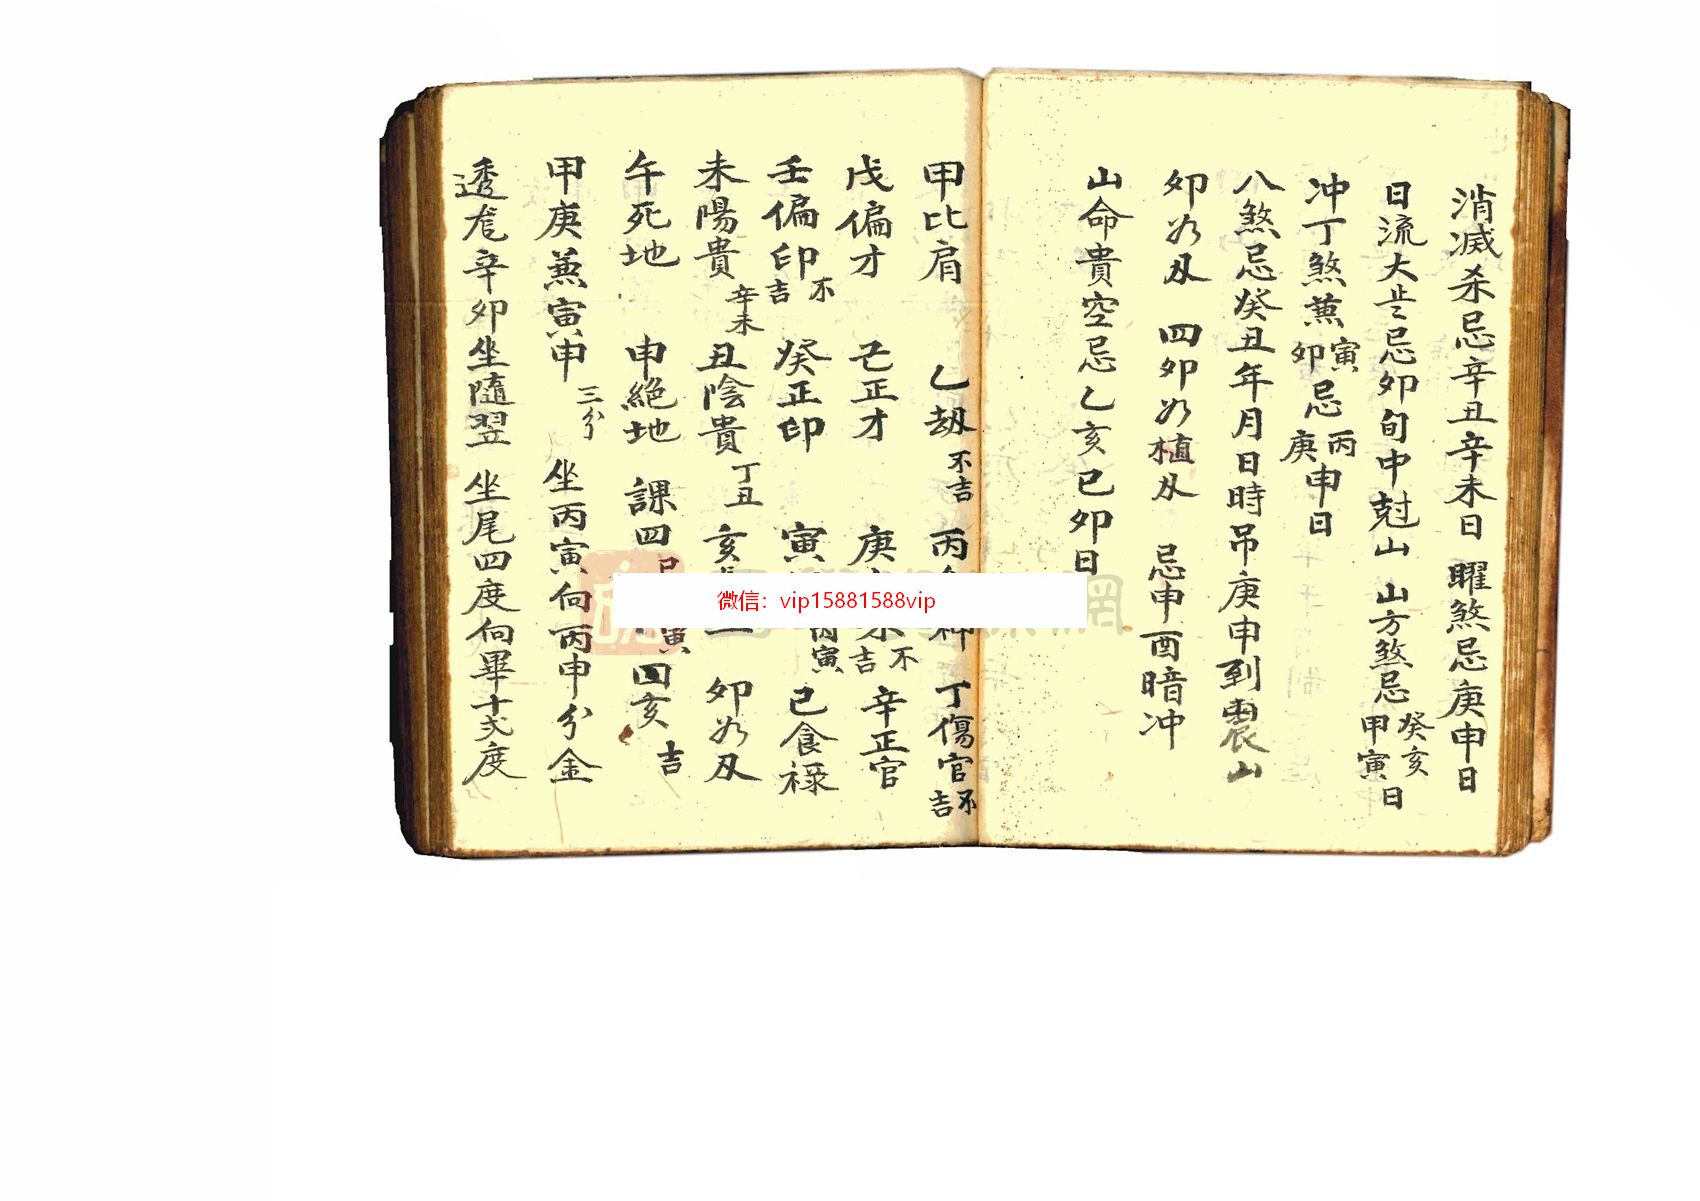 消滅杀忌辛丑辛未日 曜煞忌庚申日
日流大忌卯旬中尅山 山方煞忌癸亥甲寅日
冲丁煞兼寅卯忌丙庚申日
八煞忌癸丑年月日時吊庚申到震山
卯為刃 四卯為植刃 忌申酉暗冲
山命貴空忌乙亥己卯日
甲比肩 乙劫不吉 丙 神 丁傷官不吉
戊偏才 己正才 庚 不吉 辛正官
壬偏印不吉 癸正印 寅 寅 巳食祿
未陽貴辛未 丑陰貴丁丑 亥 卯為刃
午死地 申絕地 課四 寅 四亥 吉
甲庚兼寅申三分 坐丙寅向丙申分金
透 辛卯坐隨翌 坐尾四度向畢十 度
微信：vip15881588vip
網